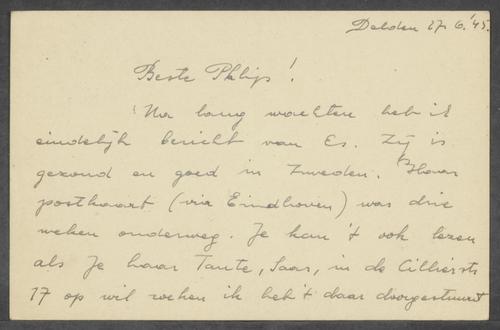 Delden 27.6.'45.
Beste Philip!
Na lang wachten heb ik
eindelijk bericht van Es. Zij is
gezond en goed in Zweden. Haar
postkaart (via Eindhoven) was drie
weken onderweg. Je kan 't ook lezen
als Je haar Tante, Saar, in de Cilliersstr
17 op wil zoeken ik heb 't daar doorgestuurd